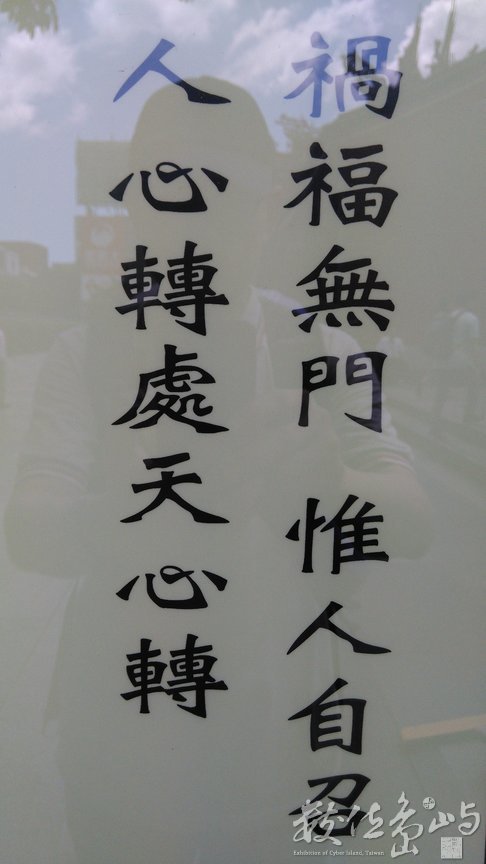 禍福無門 惟人自召
人心轉處天心轉
數位島嶼
Exhibition of Cyber Island, Taiwan